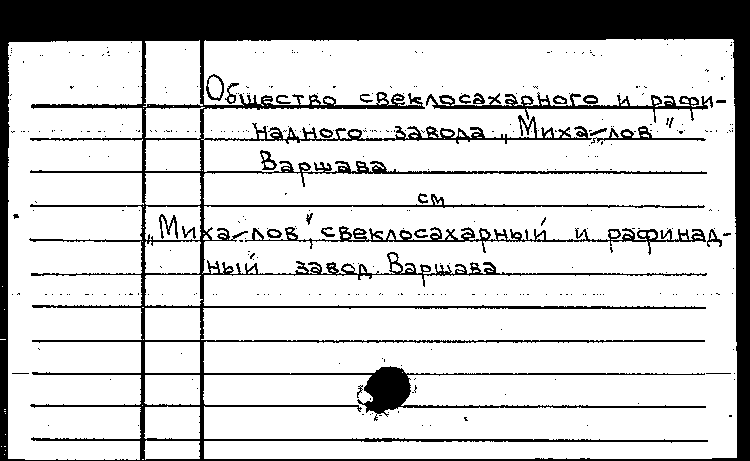 Общество свеклосахарного и рафи-
надного завода „Миха-лов".
Варшава.
см
„Миха-лов", свеклосахарный и рафинад-
ный завод. Варшава